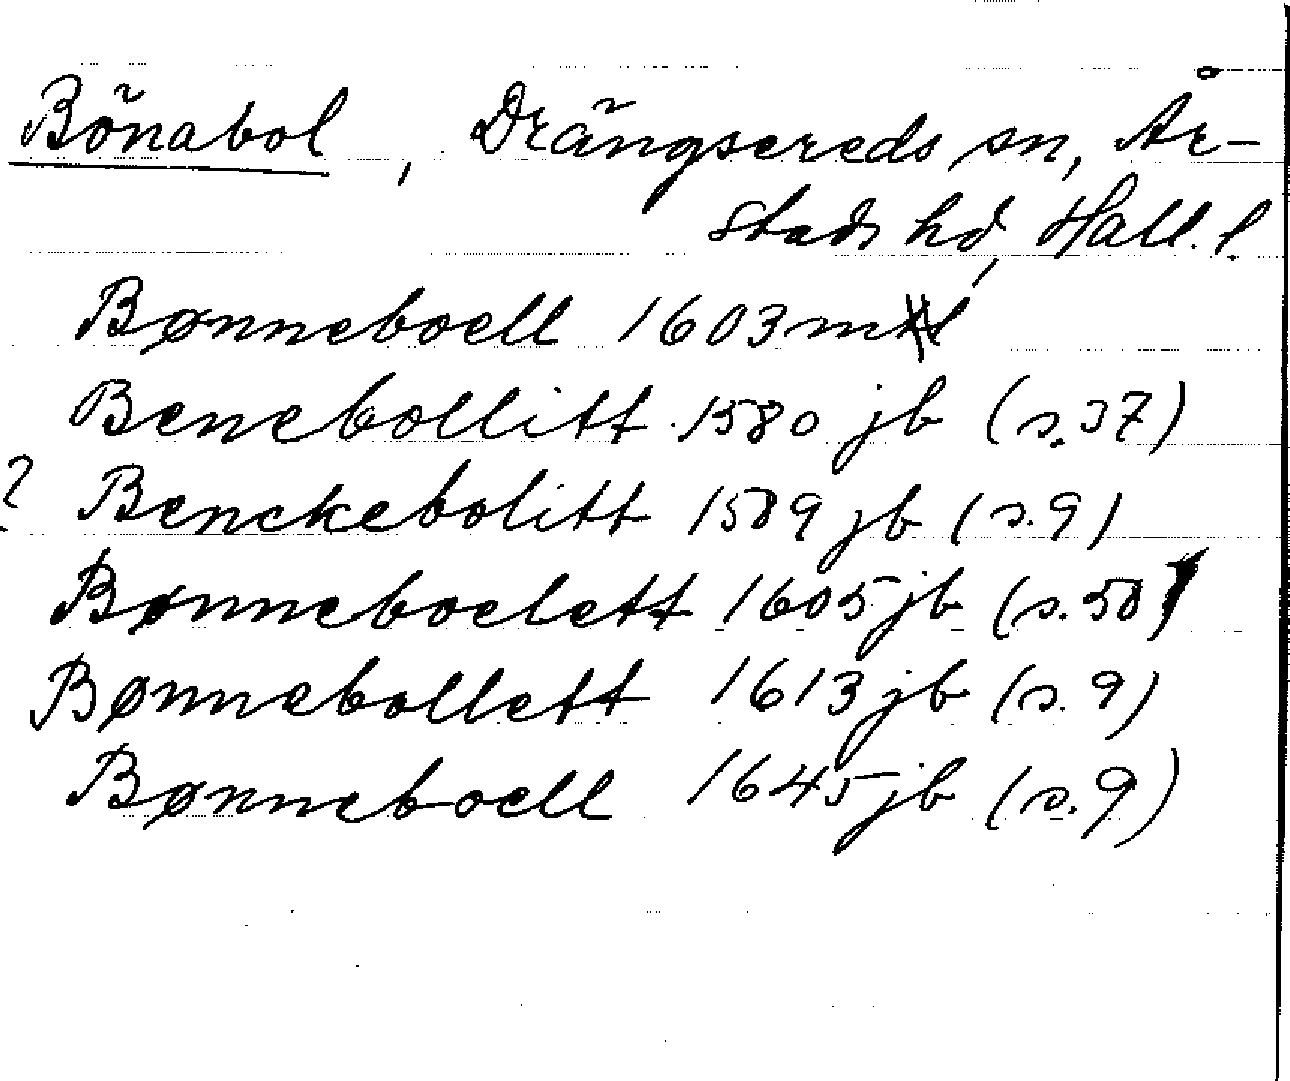 Bönabol, Drängsereds sn, År-
stads hd, Hall. l.
Bønneboell 1603 mtl
Benebollitt 1580 jb (s. 37)
? Benckebolitt 1589 jb (s. 9)
Bønneboelett 1605 jb (s. 50)
Bønnebollett 1613 jb (s. 9)
Bønneboell 1645 jb (s. 9)